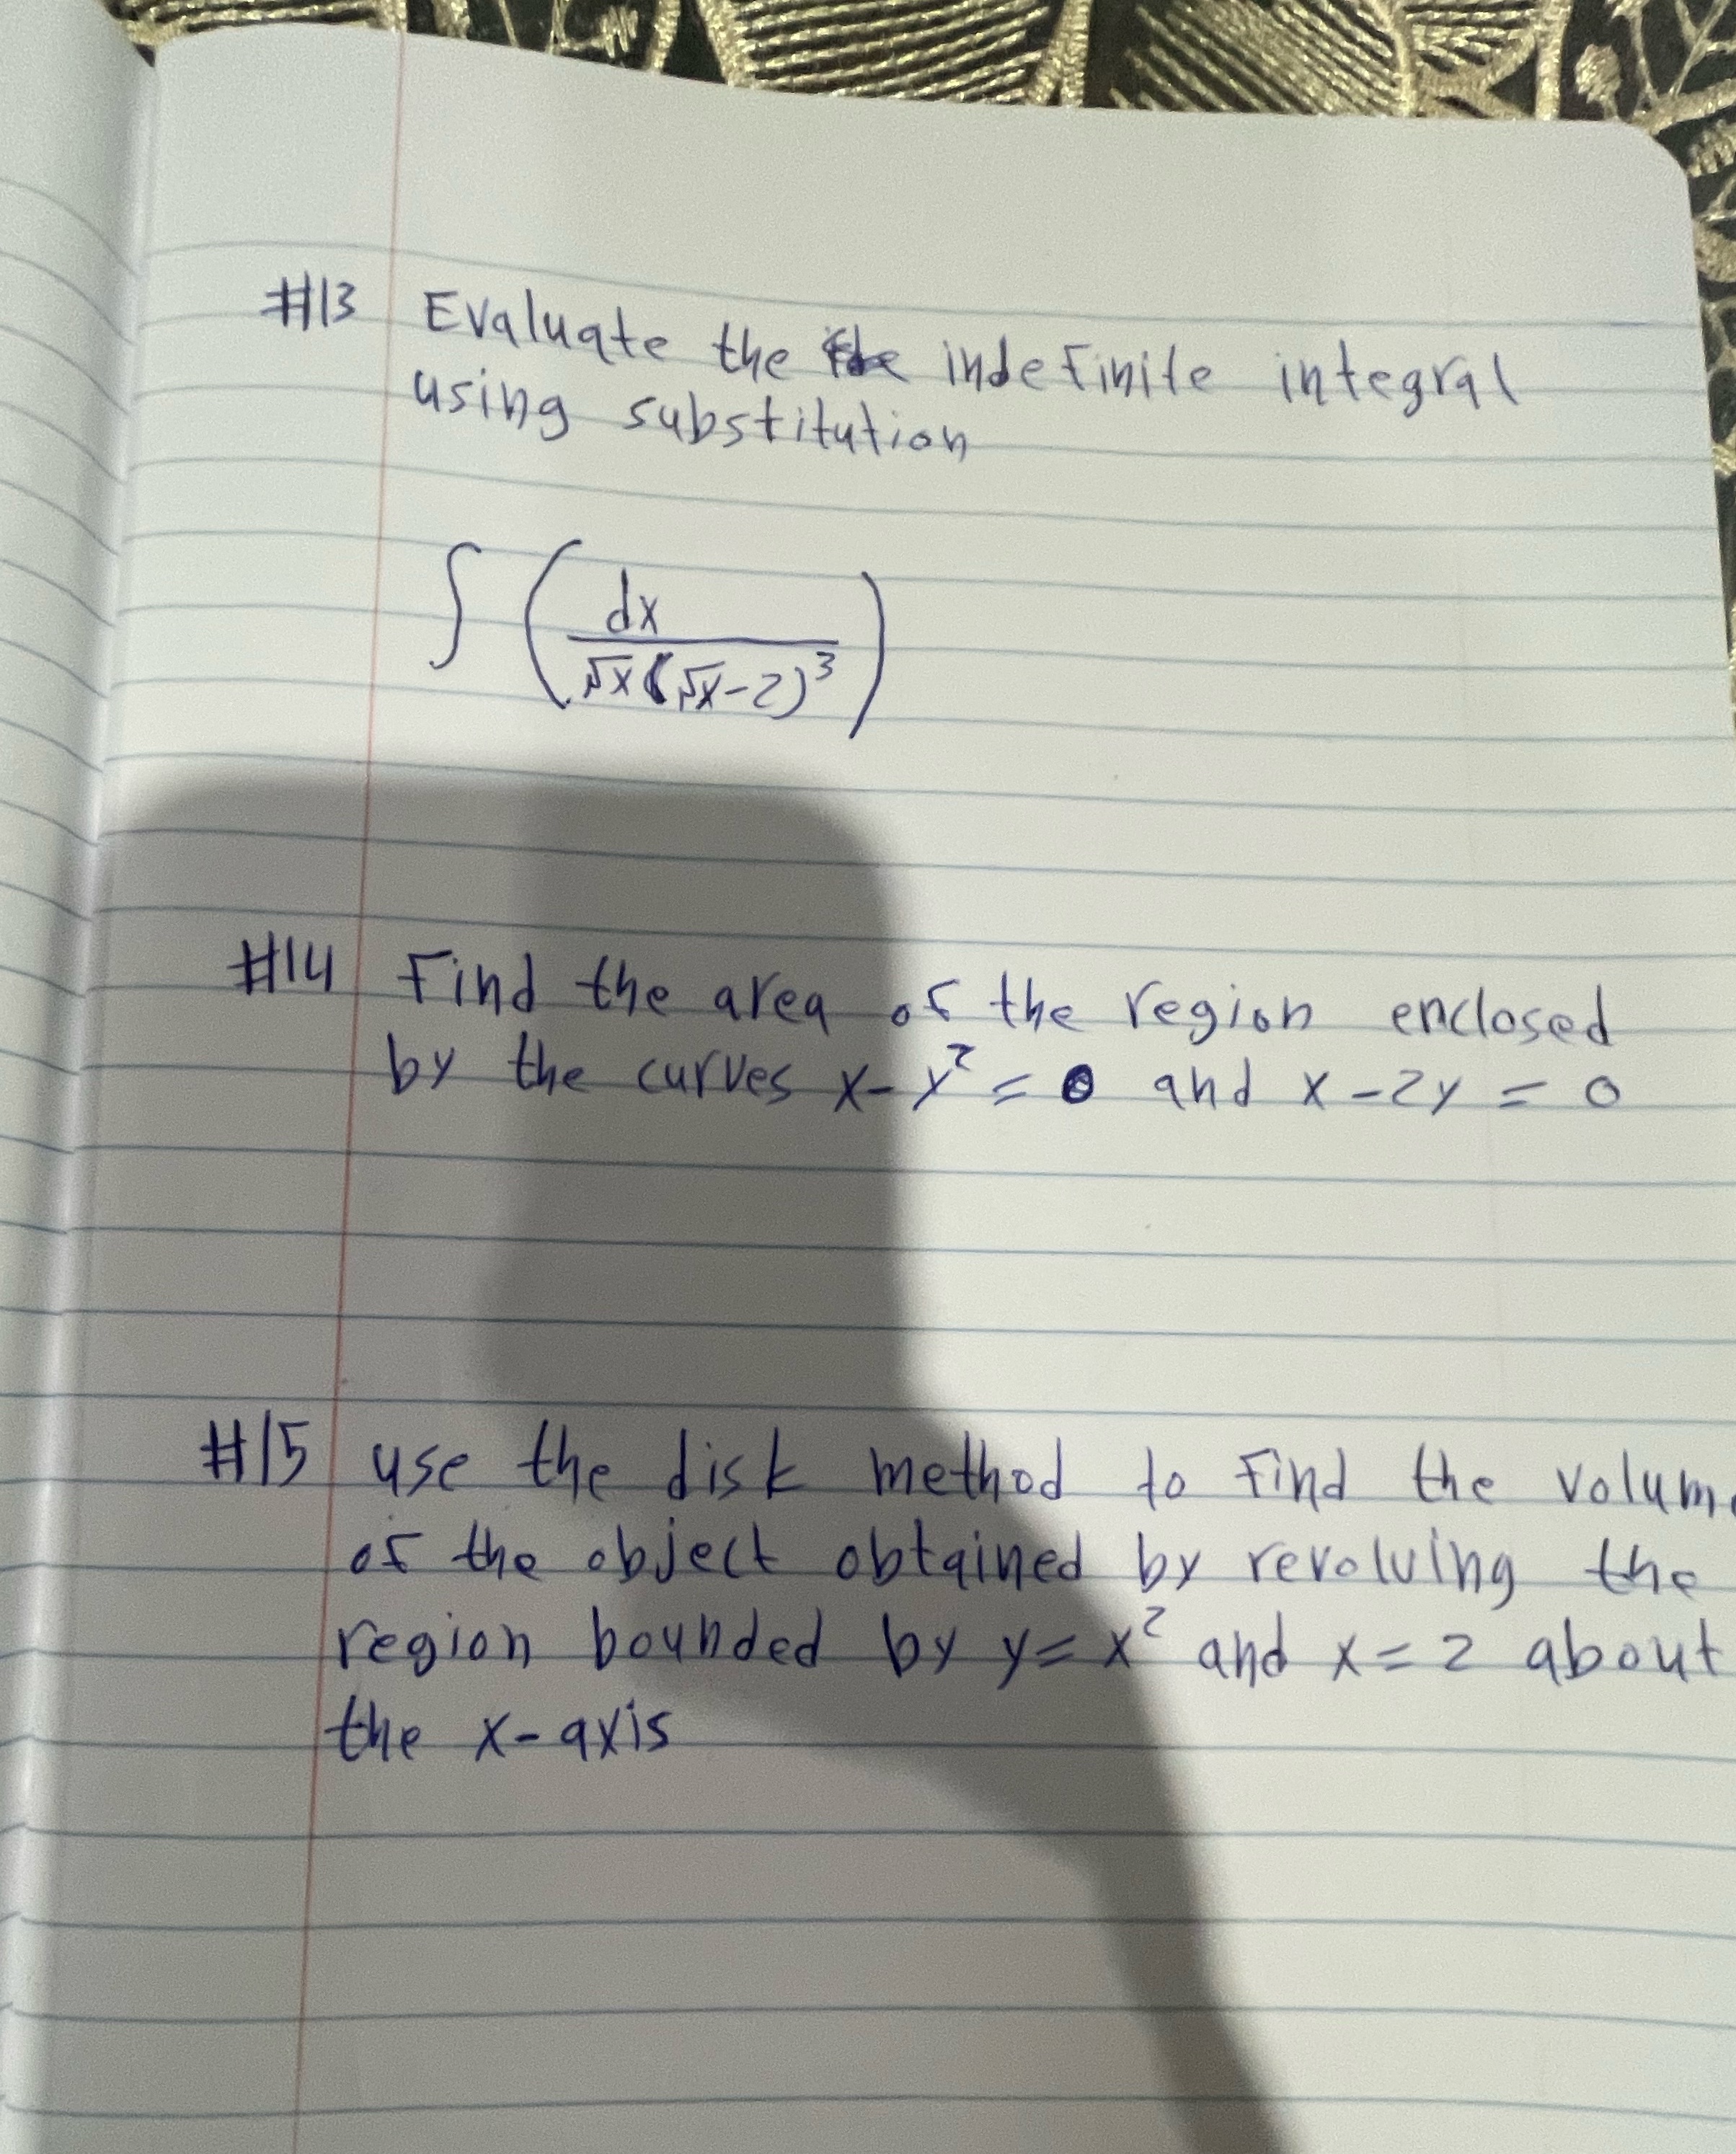 #13 Evaluate the indefinite integral
using substitution
∫ (dx / √x(√x-2)³)
#14 Find the area of the region enclosed
by the curves x-y² = 0 and x-2y = 0
#15 use the disk method to find the volume
of the object obtained by revolving the
region bounded by y=x² and x=2 about
the x-axis